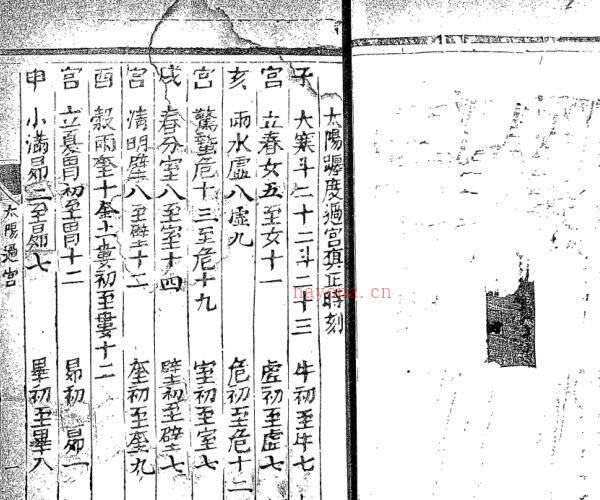 太陽躔度過宮真正時刻
子 大寒斗二十二斗二十三 牛初至牛七
宮 立春女五至女十一 虛初至虛七
亥 雨水虛八虛九 危初至危十二
宮 驚蟄危十三至危十九 室初至室七
戌 春分室八至室十四 壁初至壁七
宮 清明壁八至壁十二 奎初至奎九
酉 穀雨奎十奎十一婁初至婁十二
宮 立夏胃初至胃十二 昴初 昴一
申 小滿昴二至昴七 畢初至畢八
太陽過宮
nayona.cn